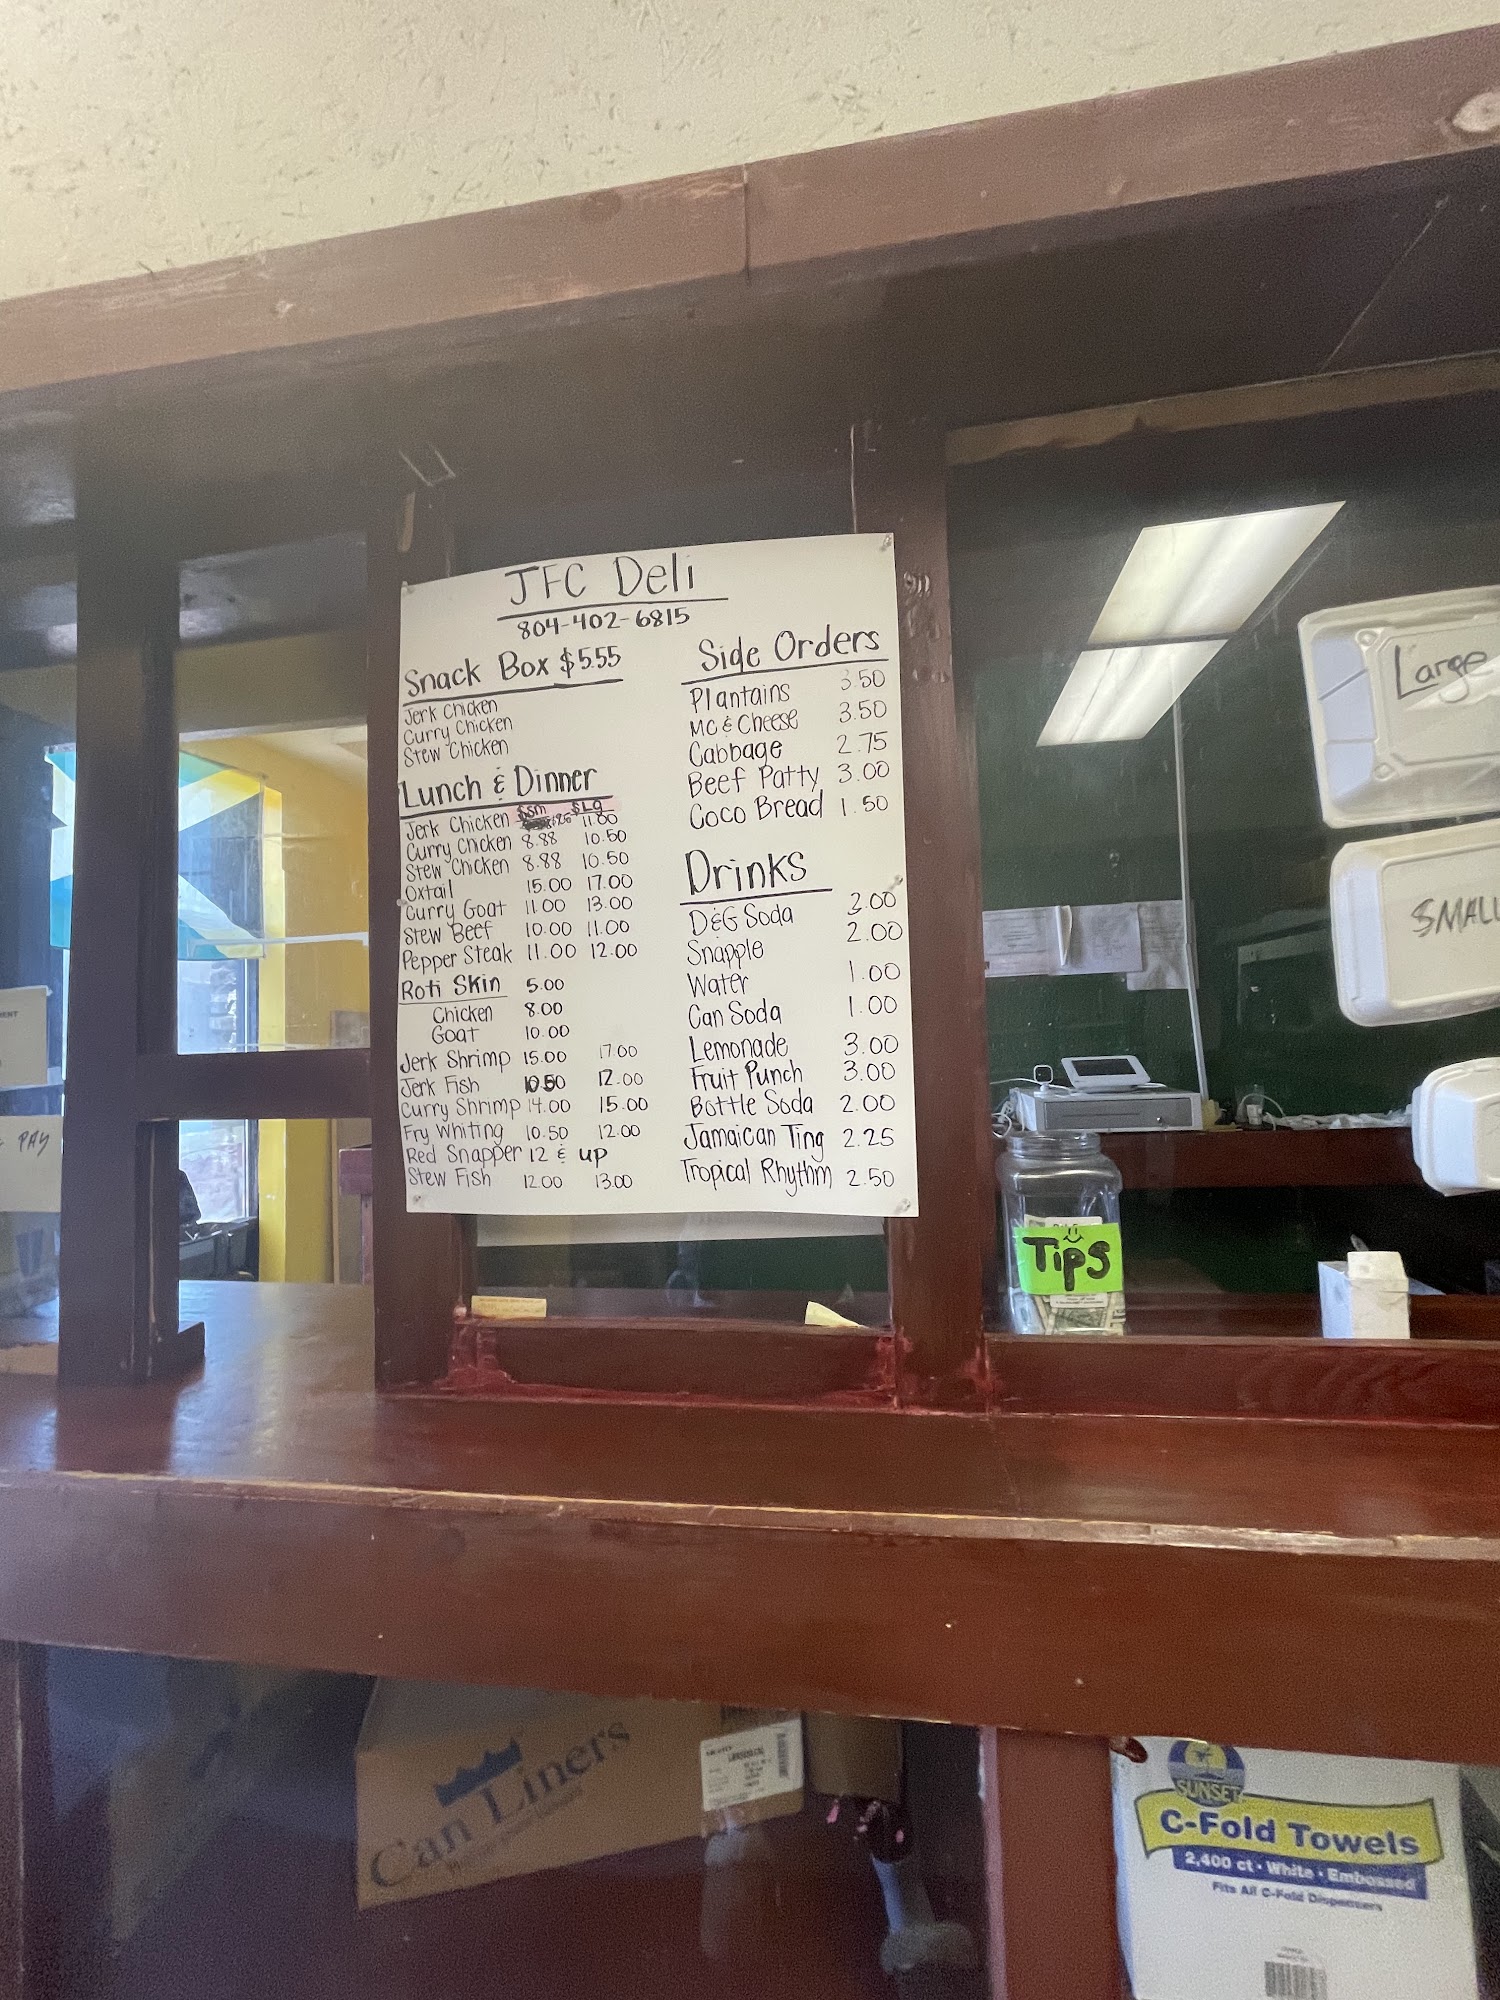 JFC Deli
804-402-6815
Snack Box $5.55
Jerk Chicken
Curry Chicken
Stew Chicken
Lunch & Dinner
$Sm $Lg
Jerk Chicken 11.00
Curry Chicken 8.88 10.50
Stew Chicken 8.88 10.50
Oxtail 15.00 17.00
Curry Goat 11.00 13.00
Stew Beef 10.00 11.00
Pepper Steak 11.00 12.00
Roti Skin 5.00
Chicken 8.00
Goat 10.00
Jerk Shrimp 15.00 17.00
Jerk Fish 10.50 12.00
Curry Shrimp 14.00 15.00
Fry Whiting 10.50 12.00
Red Snapper 12 & up
Stew Fish 12.00 13.00
Side Orders
Plantains 3.50
MC & Cheese 3.50
Cabbage 2.75
Beef Patty 3.00
Coco Bread 1.50
Drinks
D&G Soda
Snapple 2.00
Water 1.00
Can Soda 1.00
Lemonade 3.00
Fruit Punch 3.00
Bottle Soda 2.00
Jamaican Ting 2.25
Tropical Rhythm 2.50
Large
SMALL
PAY
Tips
Can Liners
SUNSET
C-Fold Towels
2,400 ct · White · Embossed
Fits All C-Fold Dispensers